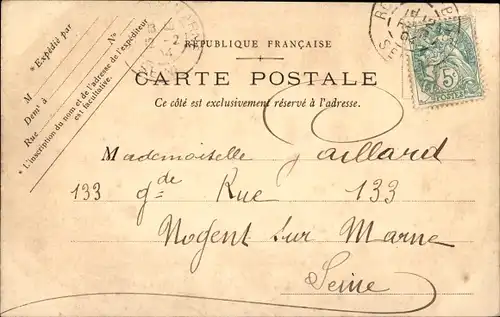 RÉPUBLIQUE FRANÇAISE
CARTE POSTALE
Ce côté est exclusivement réservé à l'adresse.
* Expédié par
M
Dem.t à
Rue
N°
* L'inscription du nom et de l'adresse de l'expéditeur
est facultative.
5c
POSTES
Mademoiselle Gaillard
133 gde Rue 133
Nogent sur Marne
Seine